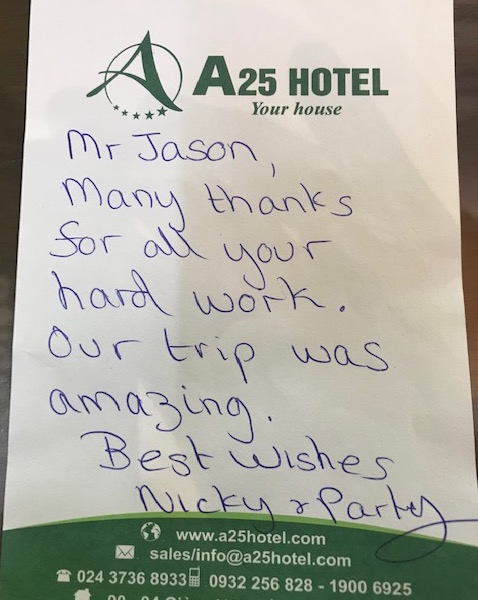 A25 HOTEL
Your house
Mr Jason,
Many thanks
for all your
hard work.
Our trip was
amazing.
Best wishes
Nicky & Party
www.a25hotel.com
sales/info@a25hotel.com
024 3736 8933 0932 256 828 - 1900 6925